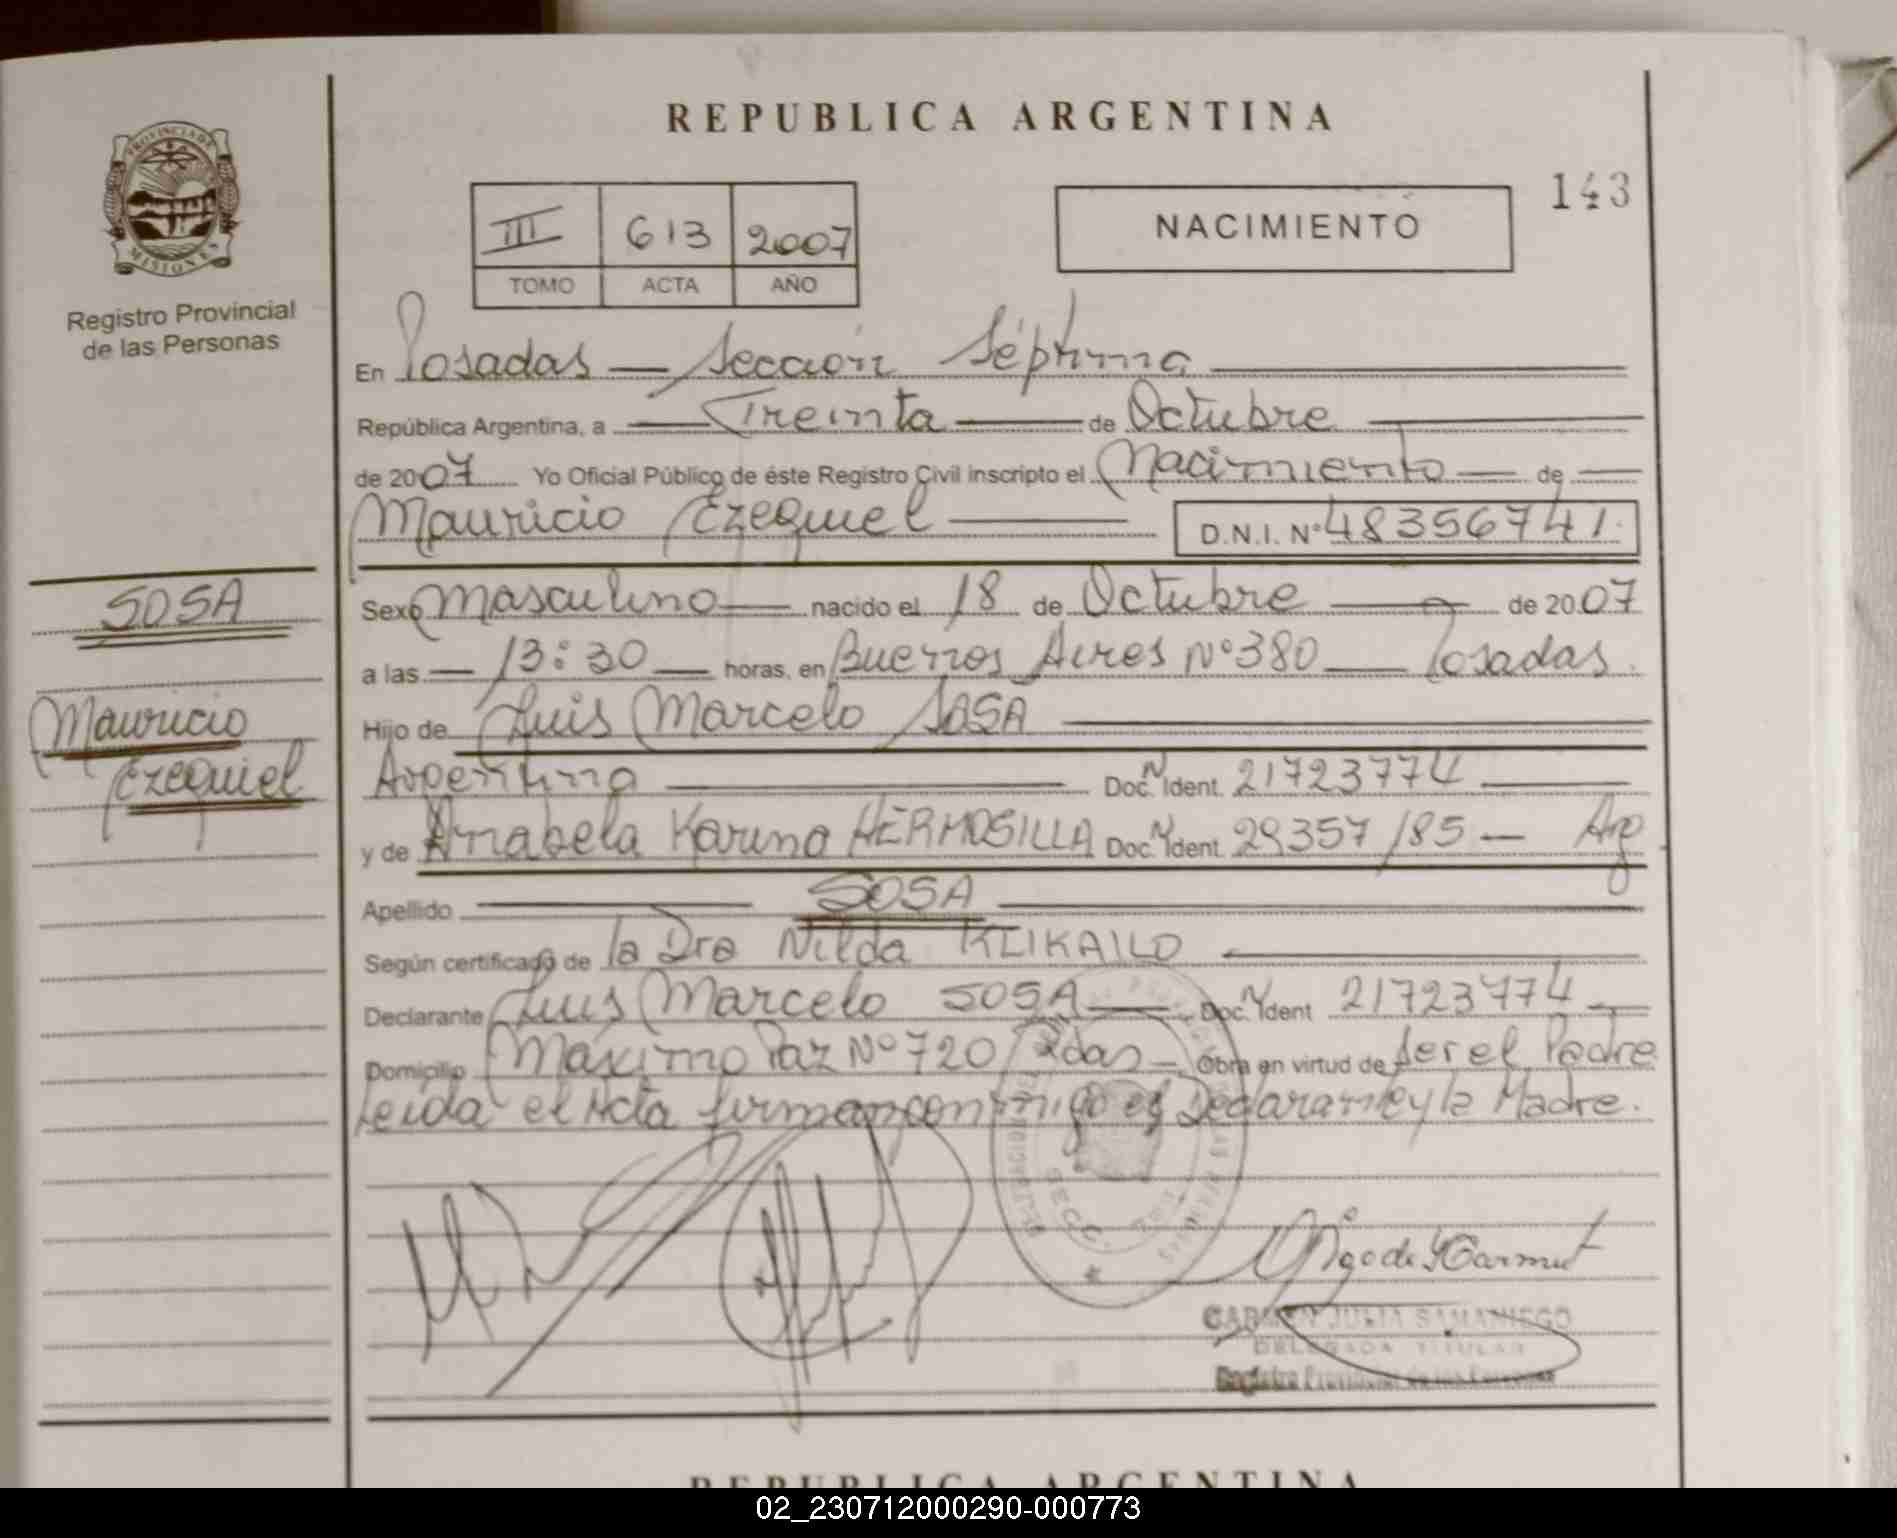 REPUBLICA ARGENTINA
PROVINCIA DE MISIONES
Registro Provincial
de las Personas
143
III 613 2007
TOMO ACTA AÑO
NACIMIENTO
En Posadas — Sección Séptima
República Argentina, a Treinta de Octubre
de 2007 Yo Oficial Público de éste Registro Civil inscripto el Nacimiento de
Mauricio Ezequiel D.N.I. Nº 48356741.
SOSA
Mauricio
Ezequiel
Sexo Masculino nacido el 18 de Octubre de 2007
a las 13:30 horas, en Buenos Aires Nº 380 — Posadas.
Hijo de Luis Marcelo SOSA
Argentino Doc. N Ident. 21723774
y de Anabela Karina HERMOSILLA Doc. N Ident. 29357185 — Arg
Apellido SOSA
Según certificado de la Dra Nilda KLIKAILO
Declarante Luis Marcelo SOSA Doc. N Ident 21723774
Domicilio Máximo Paz Nº 720 Pdas — Obra en virtud de ser el Padre
Leida el Acta firman conmigo el Declarante y la Madre.
CARMEN JULIA SAMANIEGO
DELEGADA TITULAR
Registro Provincial de las Personas
REPUBLICA ARGENTINA
02_230712000290-000773